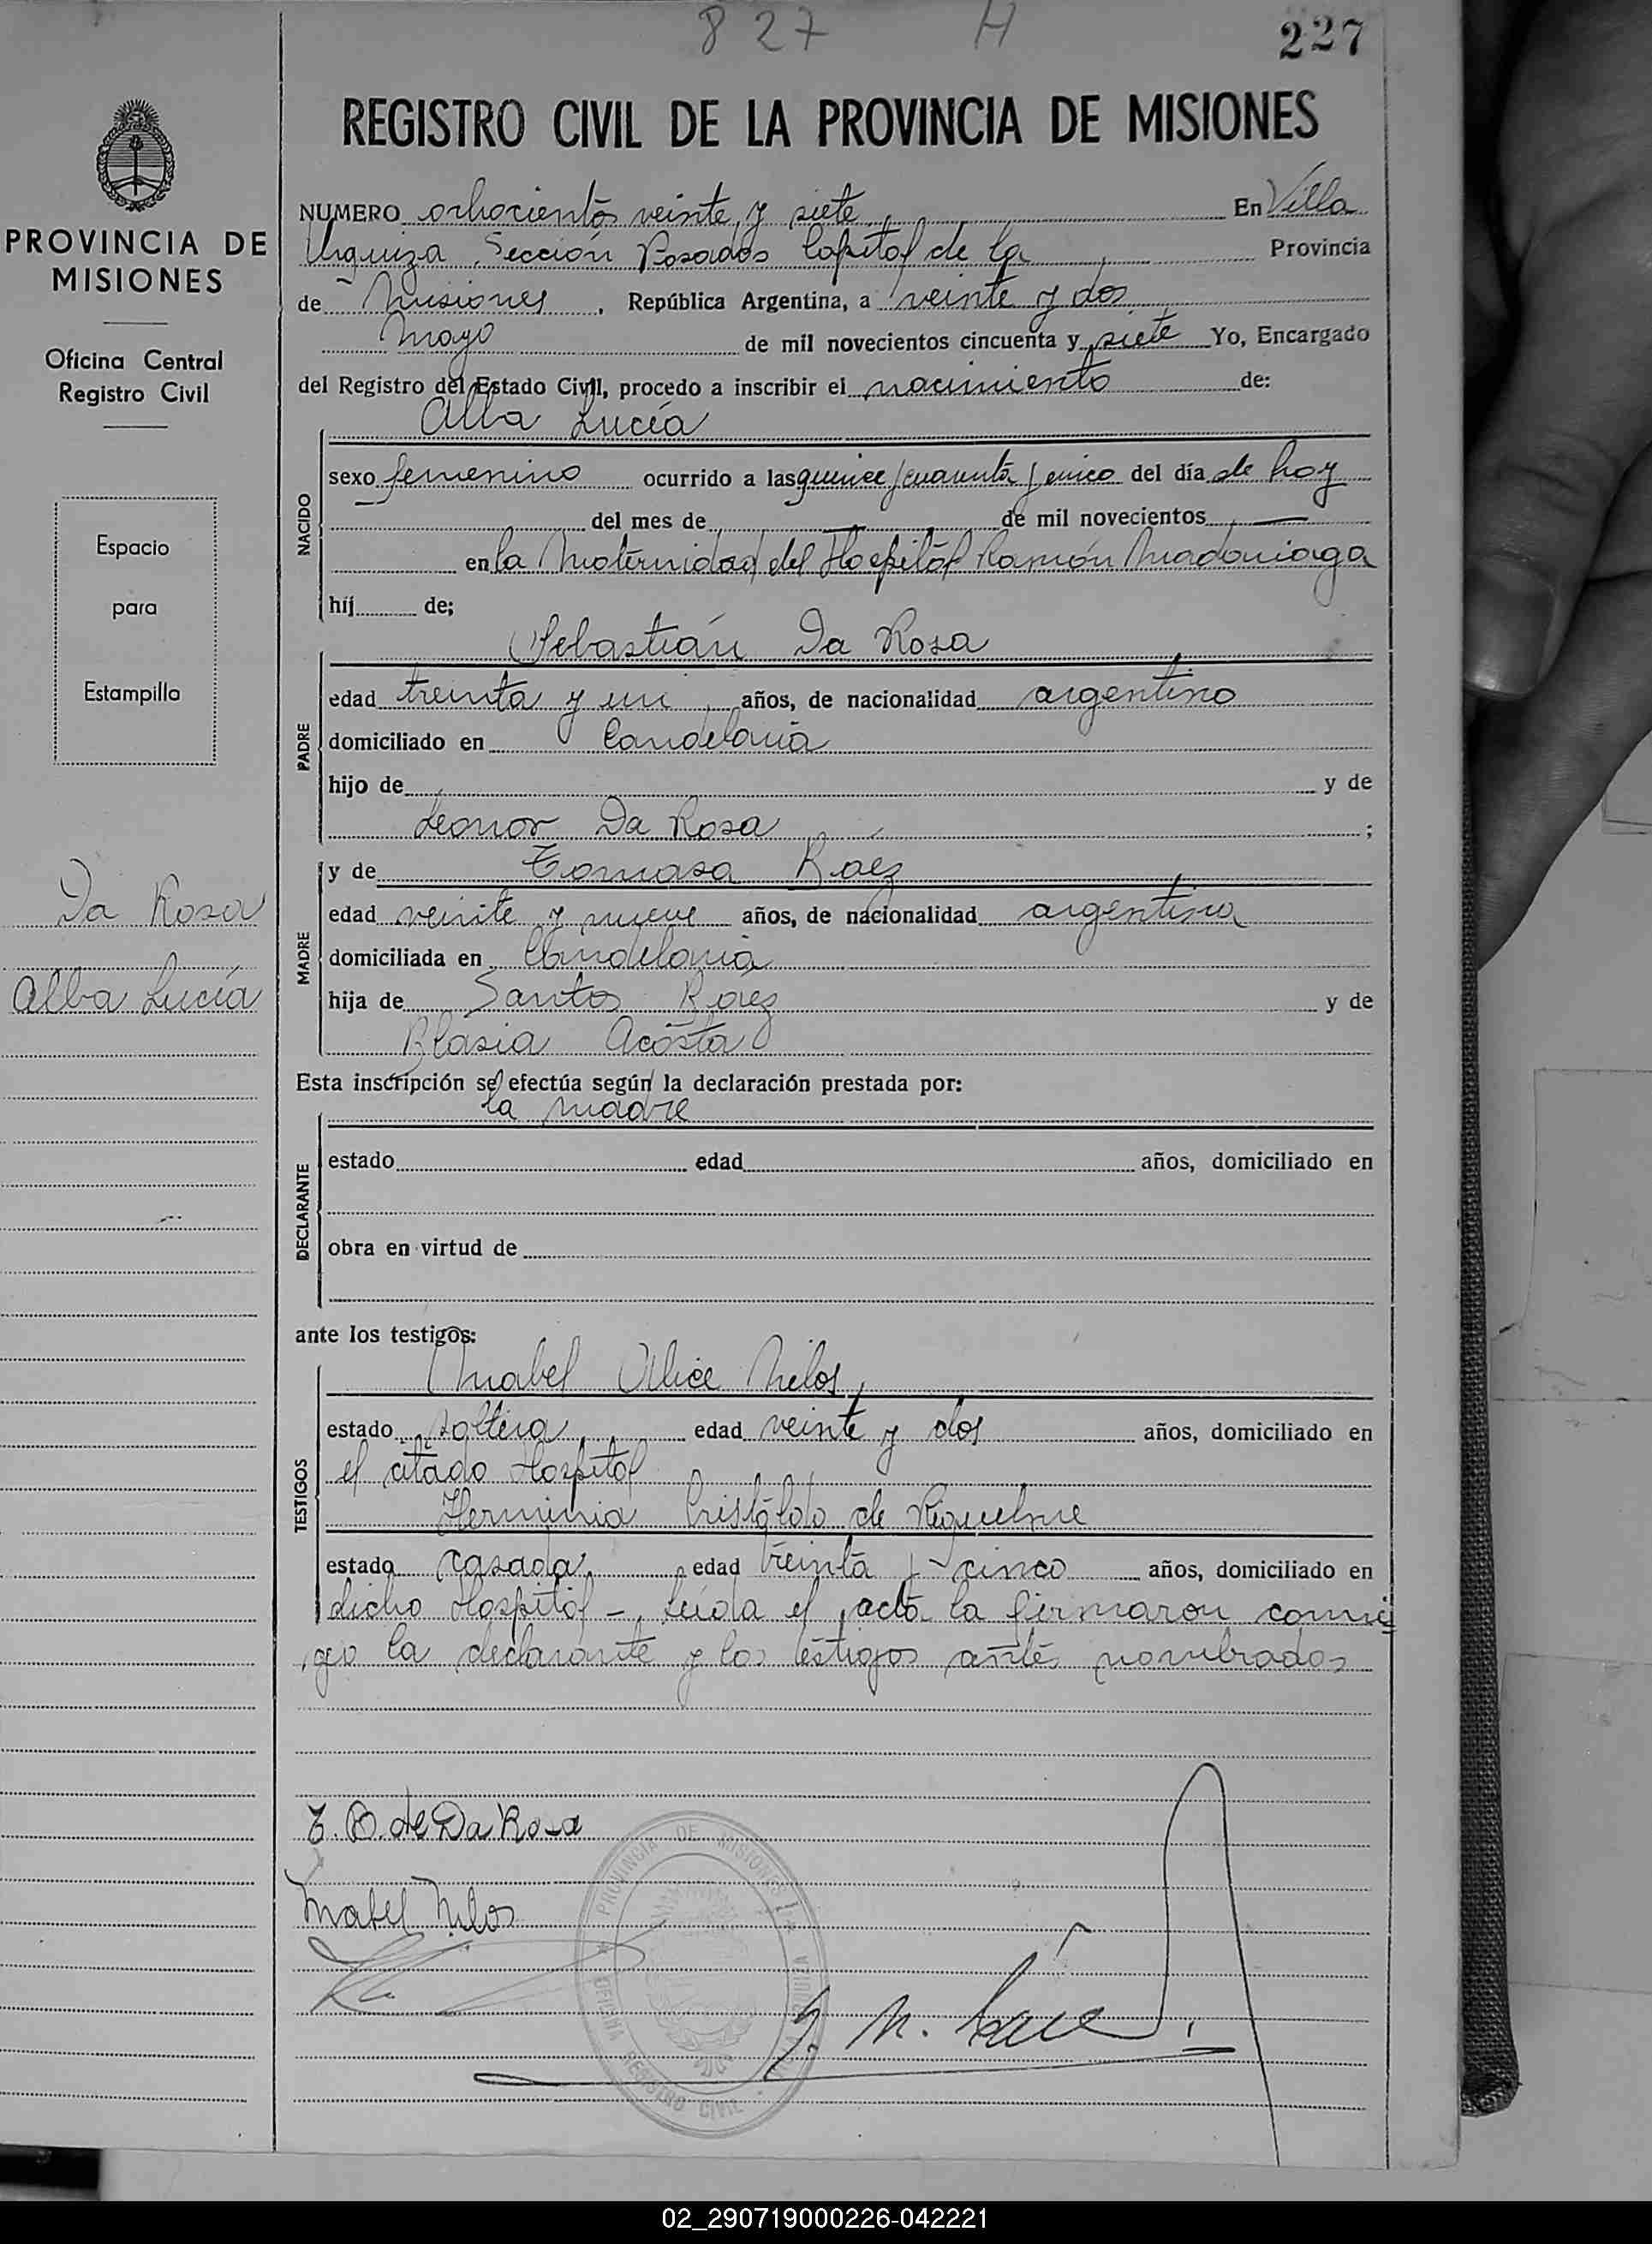 827 H 227
REGISTRO CIVIL DE LA PROVINCIA DE MISIONES
PROVINCIA DE
MISIONES
Oficina Central
Registro Civil
Espacio
para
Estampilla
Da Rosa
Alba Lucía
NUMERO ochocientos veinte y siete En Villa
Urquiza Sección Posadas Capital de la Provincia
de Misiones, República Argentina, a veinte y dos
Mayo de mil novecientos cincuenta y siete Yo, Encargado
del Registro del Estado Civil, procedo a inscribir el nacimiento de:
Alba Lucía
NACIDO
sexo femenino ocurrido a las quince / cuarenta / cinco del día de hoy
del mes de — de mil novecientos —
en la Maternidad del Hospital Ramón Madariaga
hij de;
Sebastián Da Rosa
PADRE
edad treinta y un años, de nacionalidad argentino
domiciliado en Candelaria
hijo de y de
Leonor Da Rosa ;
y de Tomasa Baez
MADRE
edad veinte y nueve años, de nacionalidad argentina
domiciliada en Candelaria
hija de Santos Baez y de
Blasia Acosta
Esta inscripción se efectúa según la declaración prestada por:
la madre
DECLARANTE
estado edad años, domiciliado en
obra en virtud de
ante los testigos:
Mabel Alice Milos
TESTIGOS
estado soltera edad veinte y dos años, domiciliado en
el citado Hospital
Herminia Cristaldo de Riquelme
estado casada edad treinta y cinco años, domiciliado en
dicho Hospital -, Leida el acta la firmaron conmi
go la declarante y los testigos antes nombrados
T. B. de Da Rosa
Mabel Milos
PROVINCIA DE MISIONES
OFICINA REGISTRO CIVIL
02_290719000226-042221